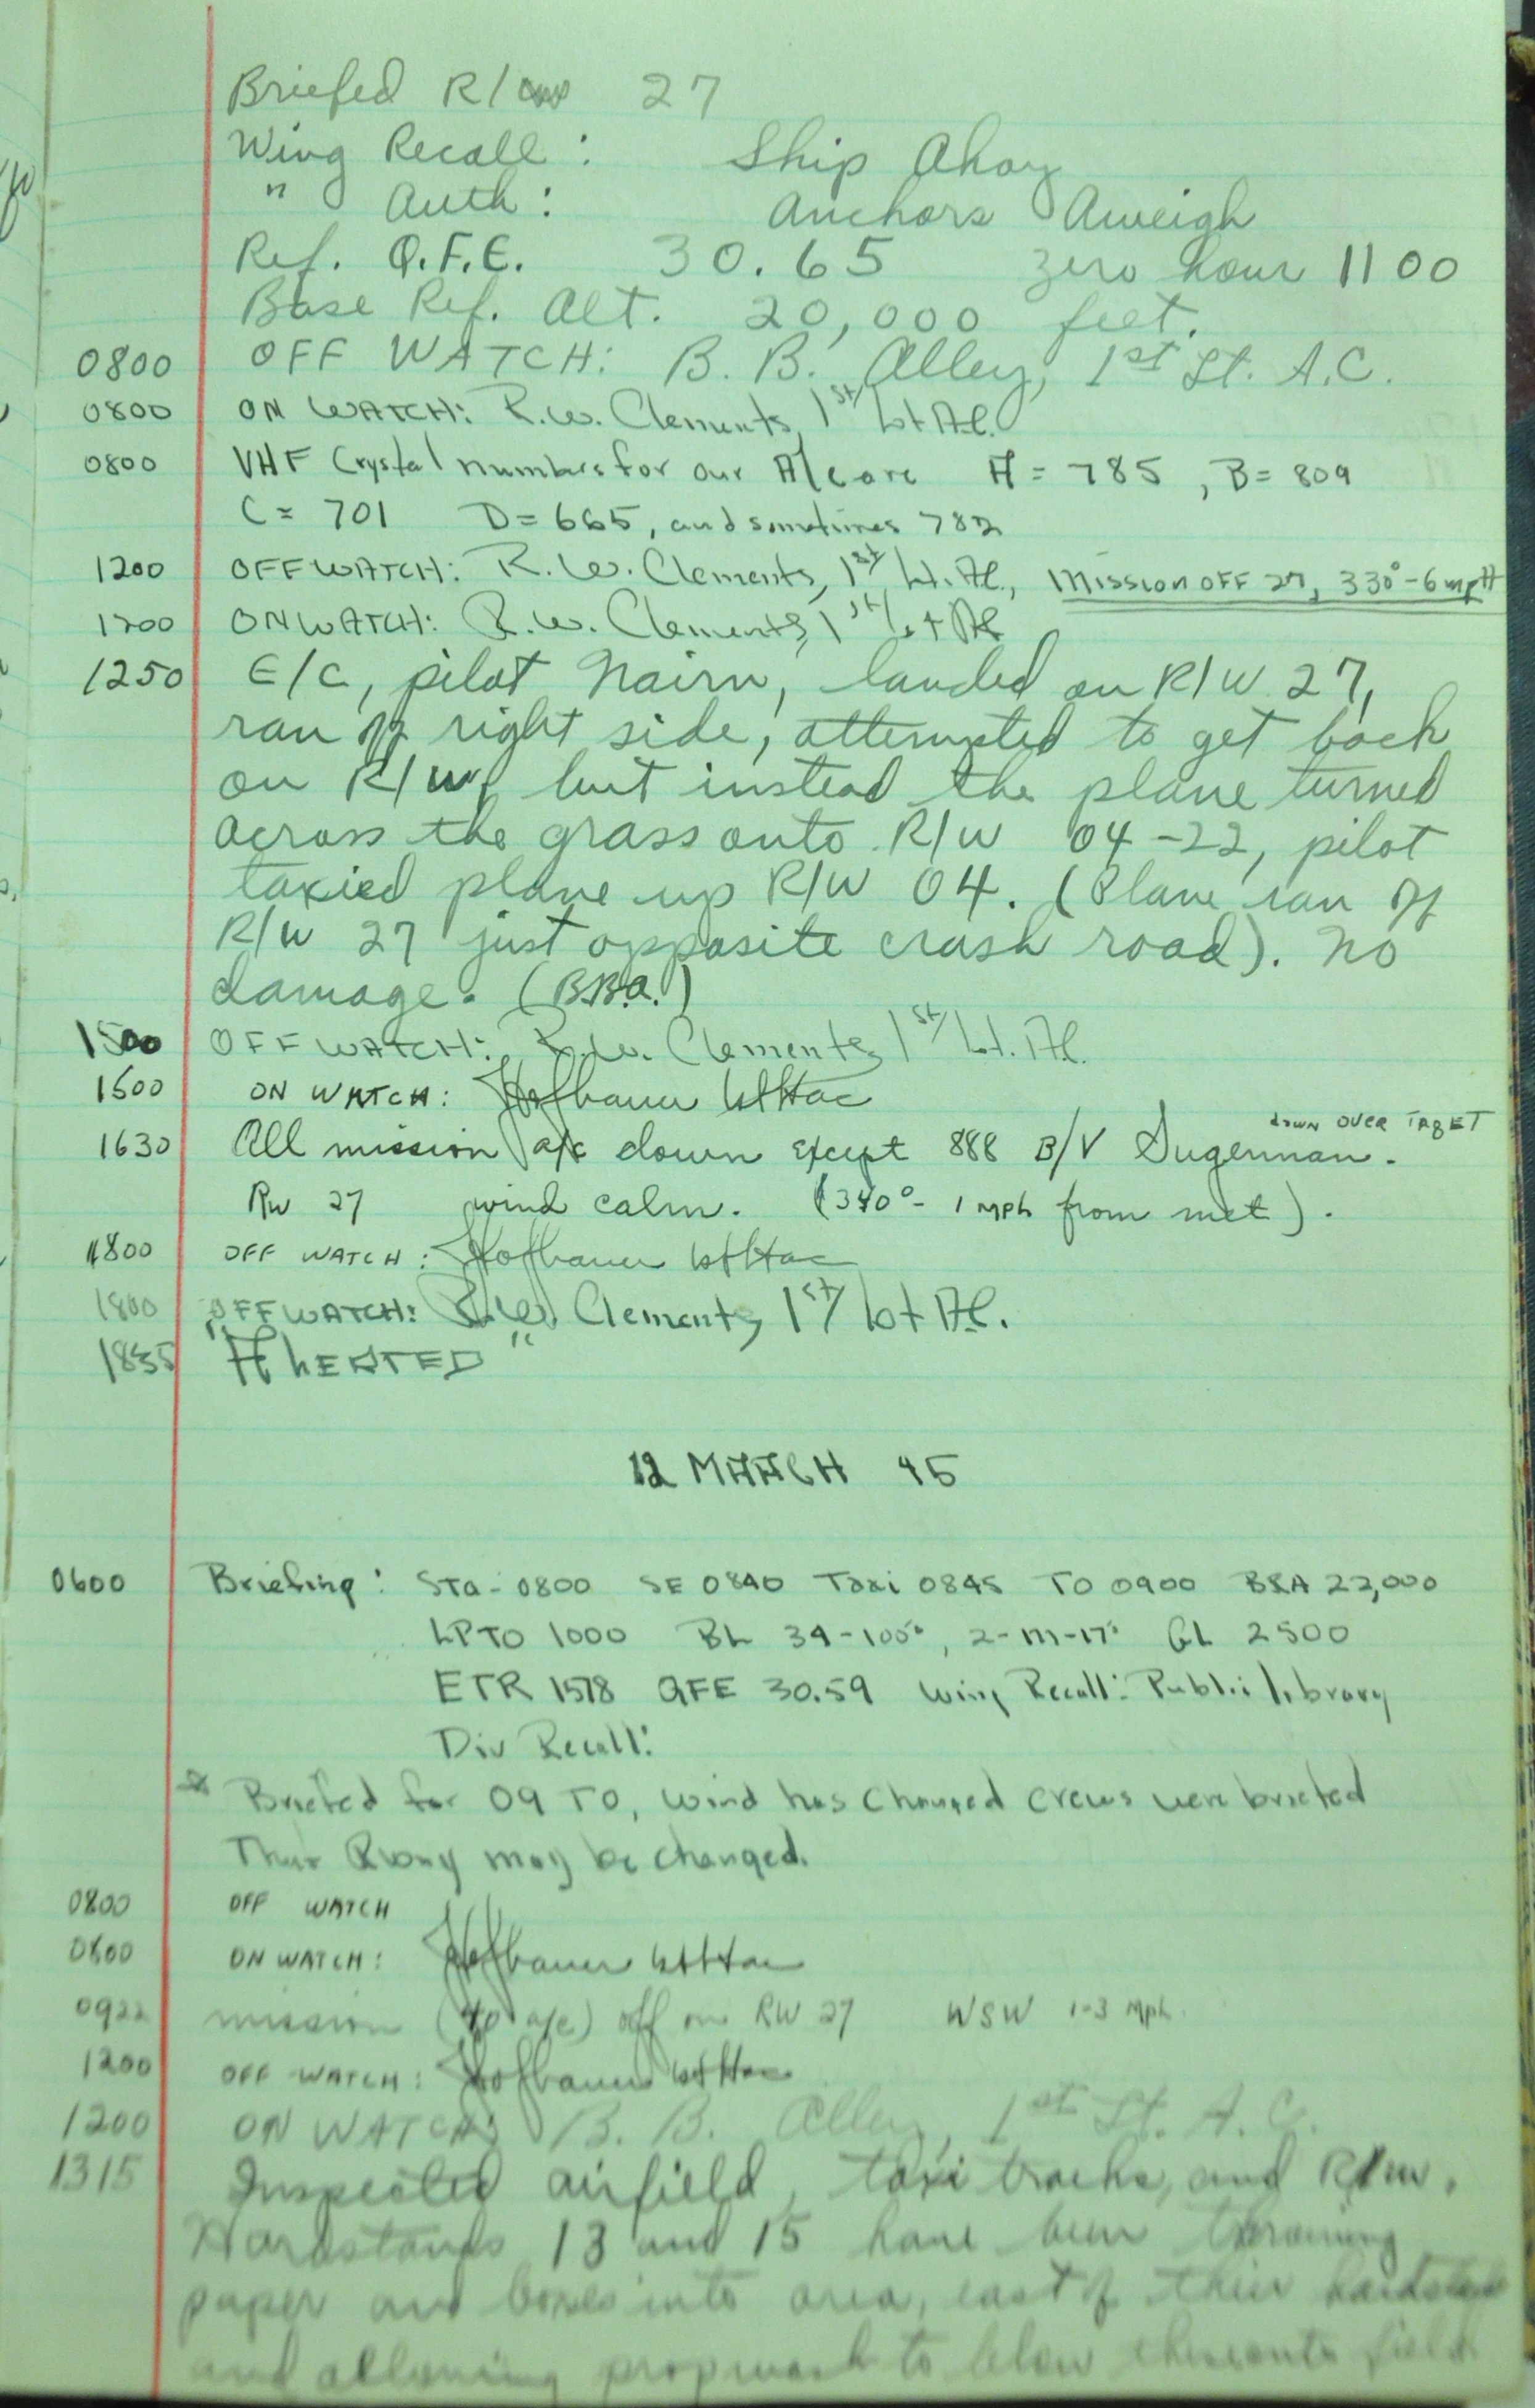 Briefed R/W 27
Wing Recall: Ship Ahoy
" Auth: Anchors Aweigh
Ref. Q.F.E. 30.65 zero hour 1100
Base Ref. Alt. 20,000 feet.
0800 OFF WATCH: B. B. Alley, 1st Lt. A.C.
0800 ON WATCH: R.W. Clements, 1st Lt AC.
0800 VHF Crystal numbers for our A/C are A = 785, B = 809
C = 701 D = 665, and sometimes 782
1200 OFF WATCH: R.W. Clements, 1st Lt. AC., Mission OFF 27, 330°-6mpH
1200 ON WATCH: R.W. Clements, 1st Lt AC
1250 E/C, pilot Nairn, landed on R/W 27,
ran off right side, attempted to get back
on R/W, but instead the plane turned
across the grass onto R/W 04-22, pilot
taxied plane up R/W 04. (Plane ran off
R/W 27 just opposite crash road). No
damage. (B.B.A.)
1500 OFF WATCH: R.W. Clements, 1st Lt. AC.
1500 ON WATCH: Hofbauer 1st Lt ac
1630 All mission a/c down except 888 B/V Sugerman. down OVER TARGET
RW 27 wind calm. (340°- 1 mph from met).
1800 OFF WATCH: Hofbauer 1st Lt ac
1800 OFF WATCH: R.W. Clements, 1st Lt AC.
1835 "ALERTED"
12 MARCH 45
0600 Briefing: Sta- 0800 SE 0840 Taxi 0845 TO 0900 BRA 22,000
LPTO 1000 BL 34-100°, 2-M-17° GL 2500
ETR 1518 QFE 30.59 Wing Recall: Public library
Div Recall:
* Briefed for 09 TO, wind has changed crews were briefed
That Rway may be changed.
0800 OFF WATCH
0800 ON WATCH: Hofbauer 1st Lt ac
0922 mission (40 a/c) off on RW 27 WSW 1-3 mph.
1200 OFF WATCH: Hofbauer 1st Lt ac
1200 ON WATCH: B. B. Alley, 1st Lt. A.C.
1315 Inspected airfield, taxi tracks, and R/W.
Hardstands 13 and 15 have been throwing
paper and boxes into area, east of their
and allowing propwash to blow them onto field